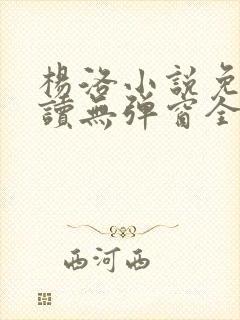 楊洛小說免
讀無彈窗全
西河西